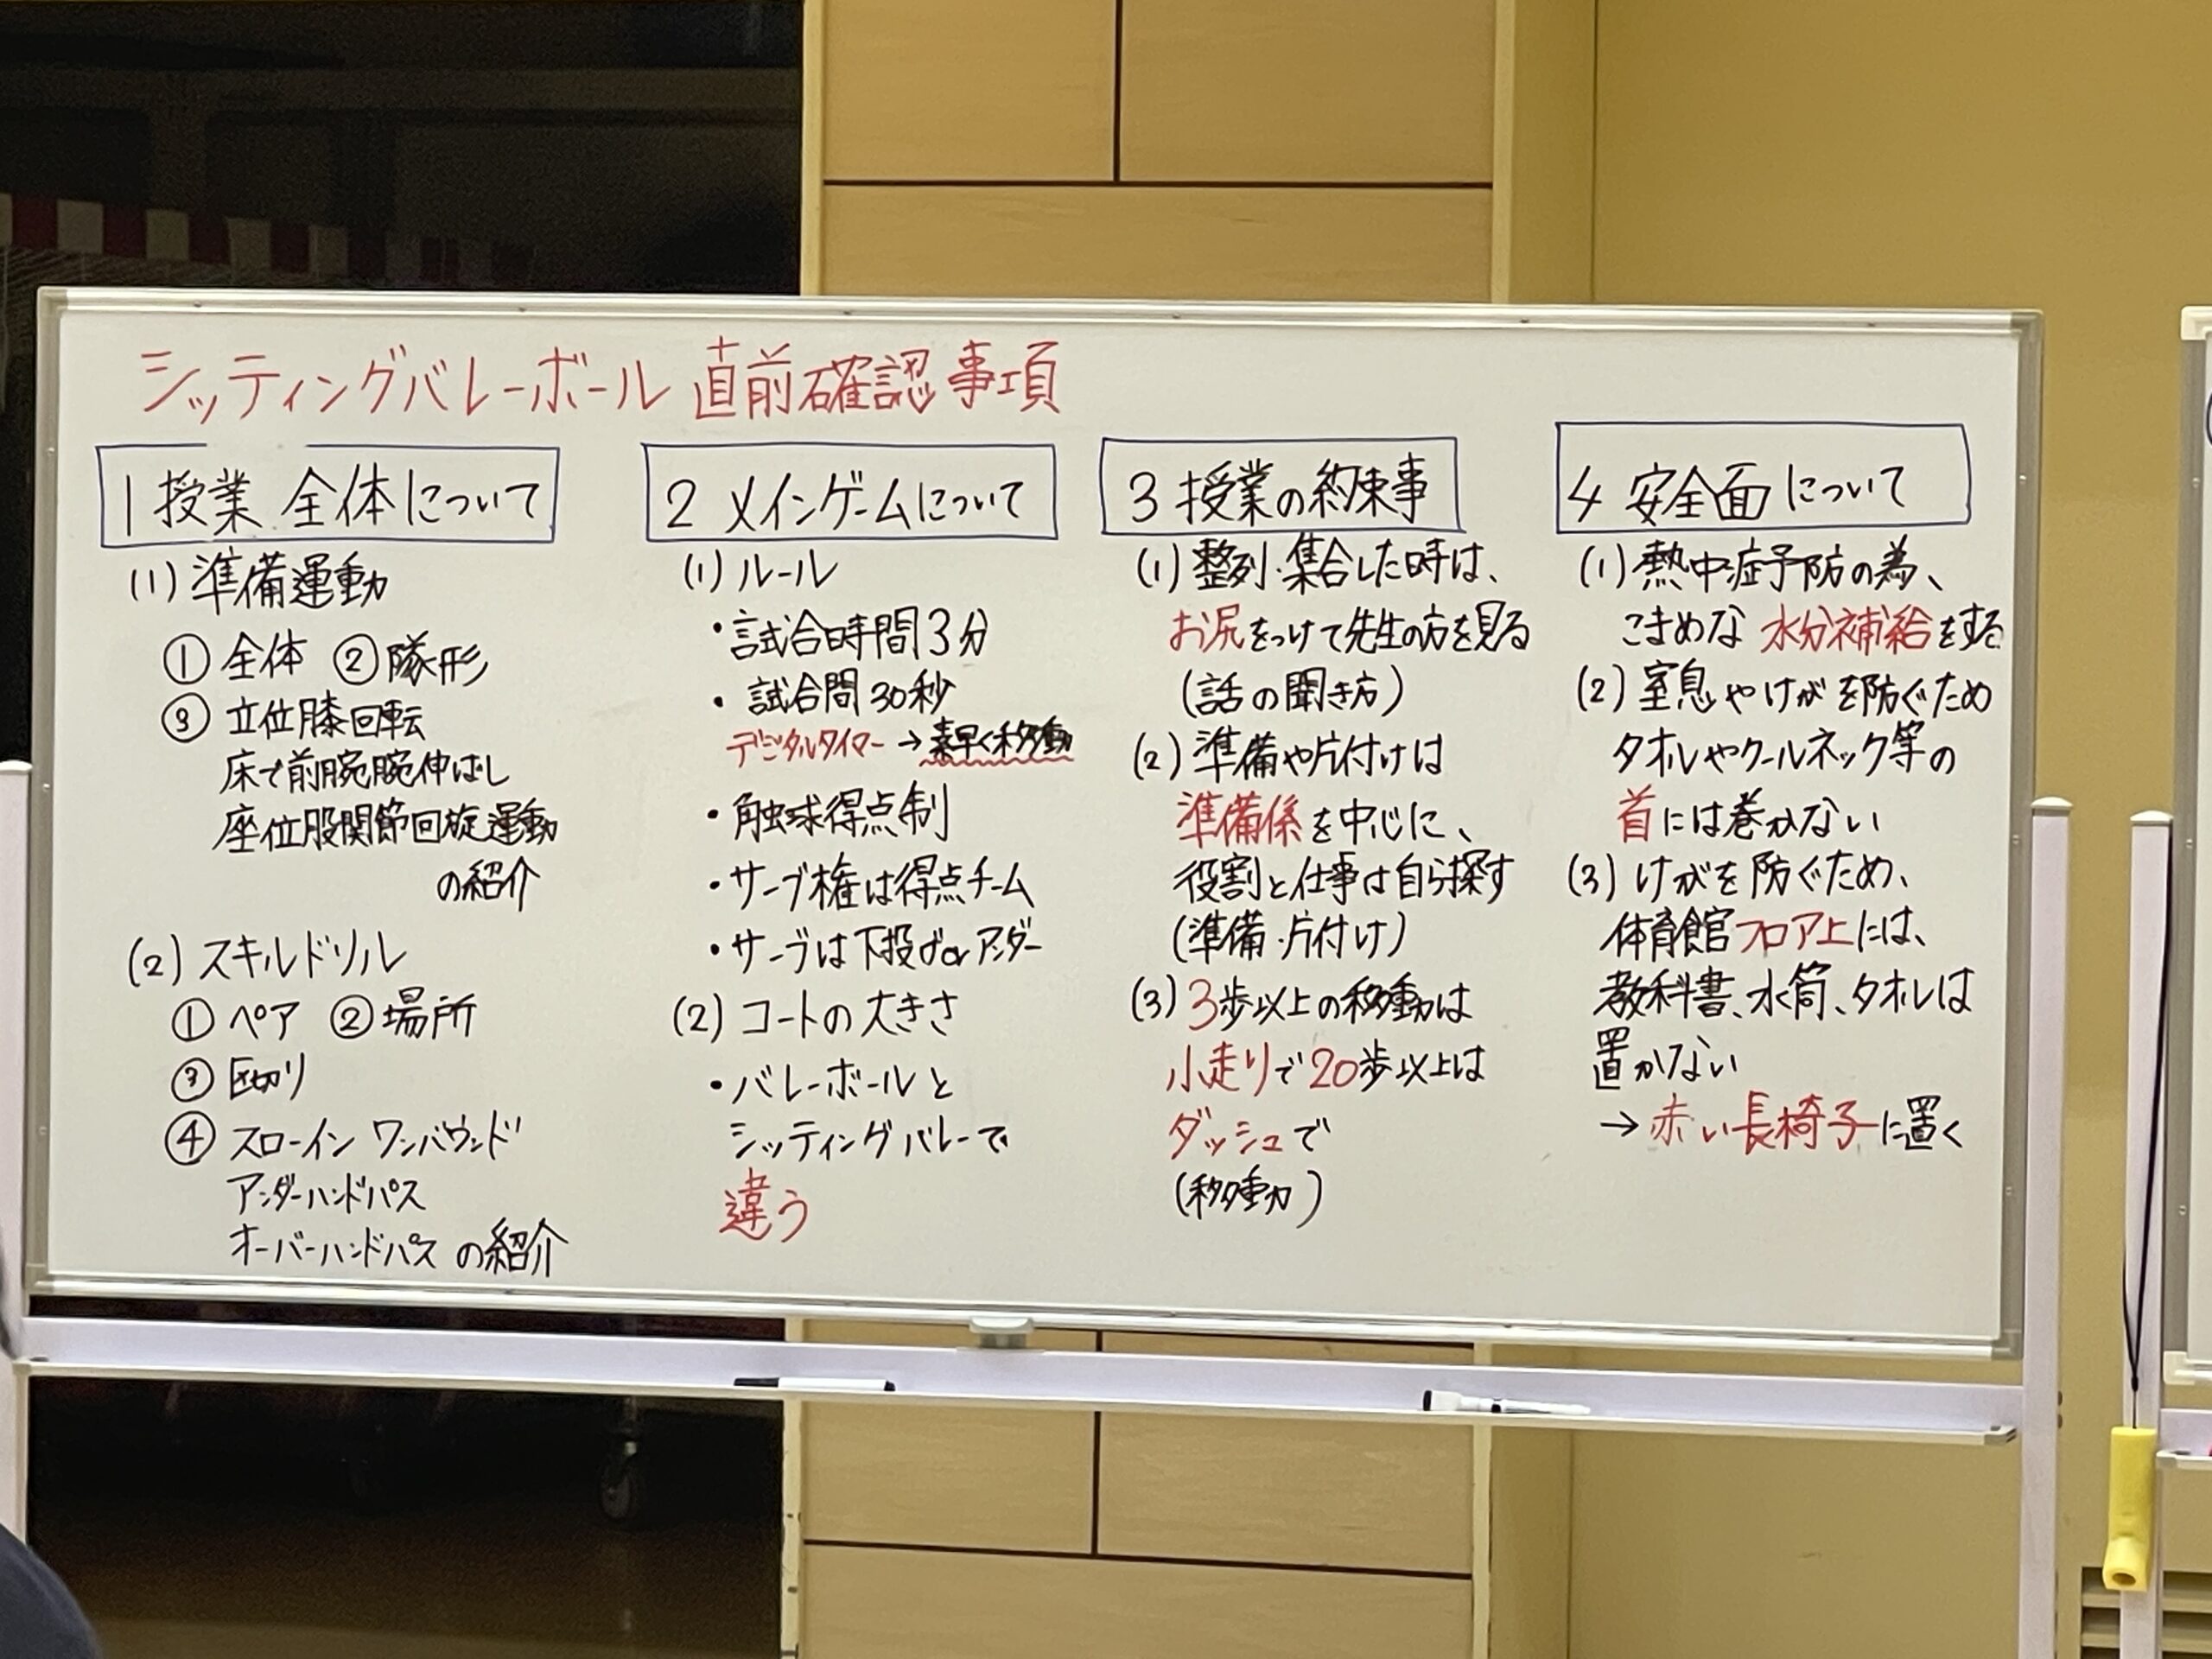 シッティングバレーボール 直前確認事項
1 授業 全体について
(1) 準備運動
① 全体 ② 隊形
③ 立位膝回転
床で前腕腕伸ばし
座位股関節回旋運動
の紹介
(2) スキルドリル
① ペア ② 場所
③ 区切り
④ スローイン ワンバウンド
アンダーハンドパス
オーバーハンドパス の紹介
2 メインゲームについて
(1) ルール
・試合時間3分
・試合間30秒
デジタルタイマー→素早く移動
・触球得点制
・サーブ権は得点チーム
・サーブは下投げorアンダー
(2) コートの大きさ
・バレーボールと
シッティングバレーで
違う
3 授業の約束事
(1) 整列・集合した時は、
お尻をつけて先生の方を見る
(話の聞き方)
(2) 準備や片付けは
準備係を中心に、
役割と仕事は自ら探す
(準備・片付け)
(3) 3歩以上の移動は
小走りで20歩以上は
ダッシュで
(移動)
4 安全面について
(1) 熱中症予防の為、
こまめな水分補給をする
(2) 窒息やけがを防ぐため
タオルやクールネック等の
首には巻かない
(3) けがを防ぐため、
体育館フロア上には、
教科書、水筒、タオルは
置かない
→赤い長椅子に置く